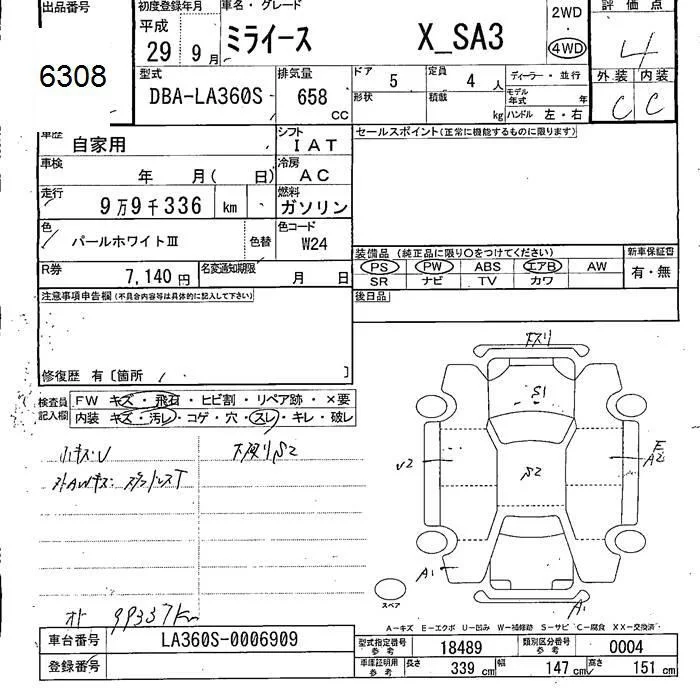 出品番号 初度登録年月 車名・グレード 2WD 評価点
平成 29 9月 ミライース X_SA3 4WD 4
6308
型式 排気量 ドア 5 定員 4人 ディーラー・並行 外装 内装
DBA-LA360S 658 CC 形状 積載 kg モデル年式 年 C C
ハンドル 左・右
車歴 自家用 シフト IAT セールスポイント(正常に機能するものに限ります)
車検 年 月( 日) 冷房 AC
走行 9万9千336 km 燃料 ガソリン
色 パールホワイトⅢ 色替 色コード W24
装備品 (純正品に限り○をつけてください) 新車保証書
R券 7,140円 名変通知期限 月 日 PS PW ABS エアB AW 有・無
SR ナビ TV カワ
注意事項申告欄(不具合内容等は具体的に記入して下さい) 後日品
修復歴 有〔箇所 〕
検査員記入欄 FW キズ・飛石・ヒビ割・リペア跡・×要
内装 キズ・汚レ・コゲ・穴・スレ・キレ・破レ
小キズ・U 下廻りS2
スタッドレスT
99337km
S1
U2 S2 E A2
A1 A1
スペア
A-キズ E-エクボ U-凹み W-補修跡 S-サビ C-腐食 XX-交換済
車台番号 LA360S-0006909 型式指定番号 参考 18489 類別区分番号 参考 0004
登録番号 車庫証明用 参考 長さ 339 cm 幅 147 cm 高さ 151 cm